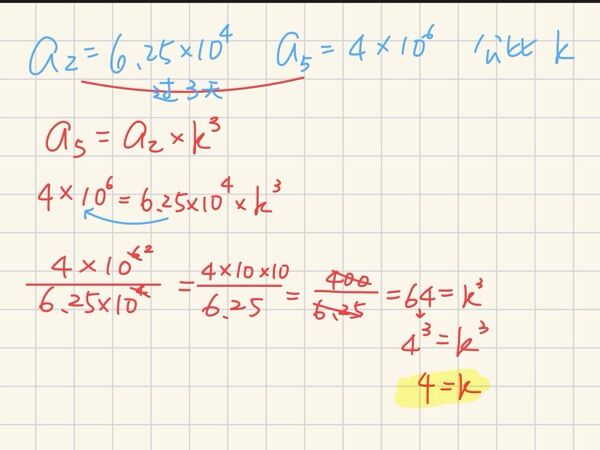 a₂ = 6.25×10⁴ a₅ = 4×10⁶ 公比 k
过3天
a₅ = a₂ × k³
4×10⁶ = 6.25×10⁴ × k³
4×10⁶ ² / 6.25×10⁴ = 4×10×10 / 6.25 = 400 / 6.25 = 64 = k³
4³ = k³
4 = k